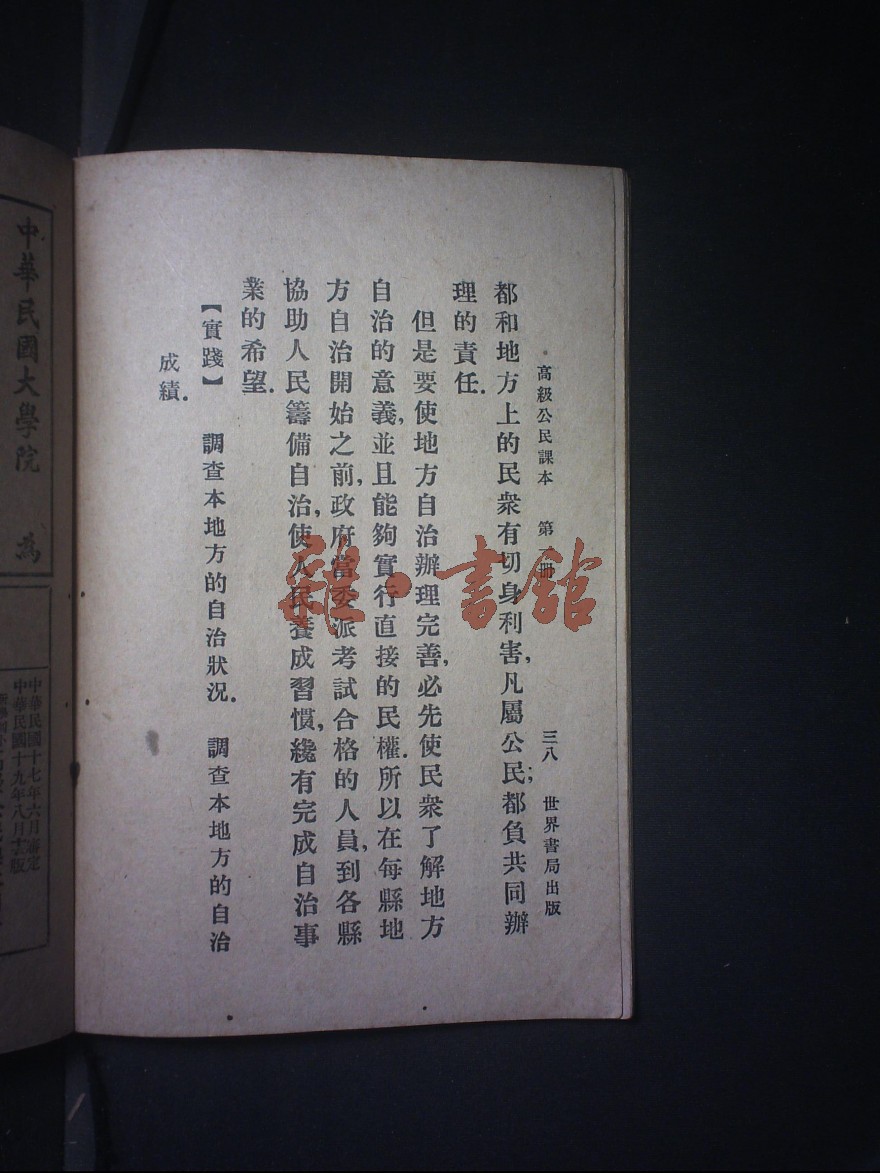 高級公民課本 第一冊 三八 世界書局出版
都和地方上的民衆有切身利害，凡屬公民；都負共同辦
理的責任．
但是要使地方自治辦理完善，必先使民衆了解地方
自治的意義，並且能夠實行直接的民權．所以在每縣地
方自治開始之前，政府當委派考試合格的人員，到各縣
協助人民籌備自治，使人民養成習慣，纔有完成自治事
業的希望．
【實踐】 調查本地方的自治狀況． 調查本地方的自治
成績．
雜·書館
中華民國大學院 為
中華民國十七年六月審定
中華民國十九年八月 版